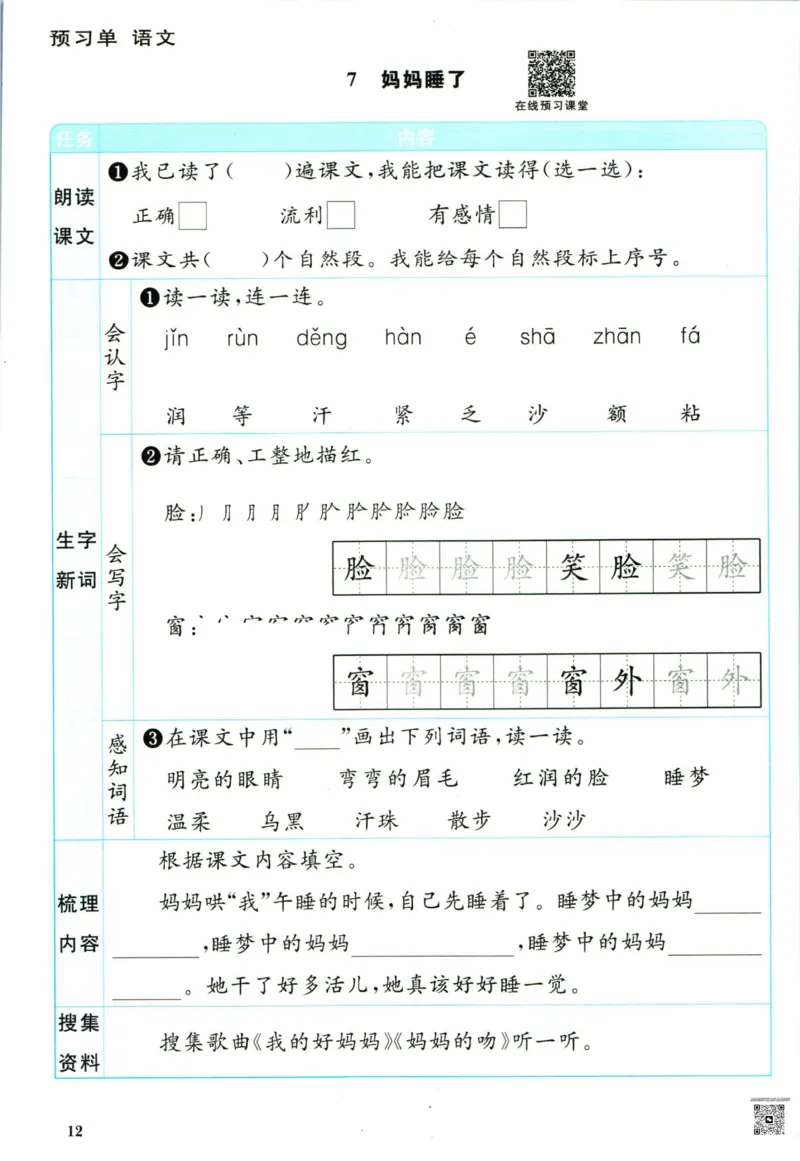 预习单 语文
7 妈妈睡了
在线预习课堂
任务 内容
朗读课文
❶我已读了( )遍课文,我能把课文读得(选一选):
正确□ 流利□ 有感情□
❷课文共( )个自然段。我能给每个自然段标上序号。
生字新词
会认字
❶读一读,连一连。
jǐn rùn děng hàn é shā zhān fá
润 等 汗 紧 乏 沙 额 粘
会写字
❷请正确、工整地描红。
脸:
脸 脸 脸 脸 笑 脸 笑 脸
窗:
窗 窗 窗 窗 窗 外 窗 外
感知词语
❸在课文中用“____”画出下列词语,读一读。
明亮的眼睛 弯弯的眉毛 红润的脸 睡梦
温柔 乌黑 汗珠 散步 沙沙
梳理内容
根据课文内容填空。
妈妈哄“我”午睡的时候,自己先睡着了。睡梦中的妈妈______
________,睡梦中的妈妈______________,睡梦中的妈妈________
______。她干了好多活儿,她真该好好睡一觉。
搜集资料
搜集歌曲《我的好妈妈》《妈妈的吻》听一听。
12